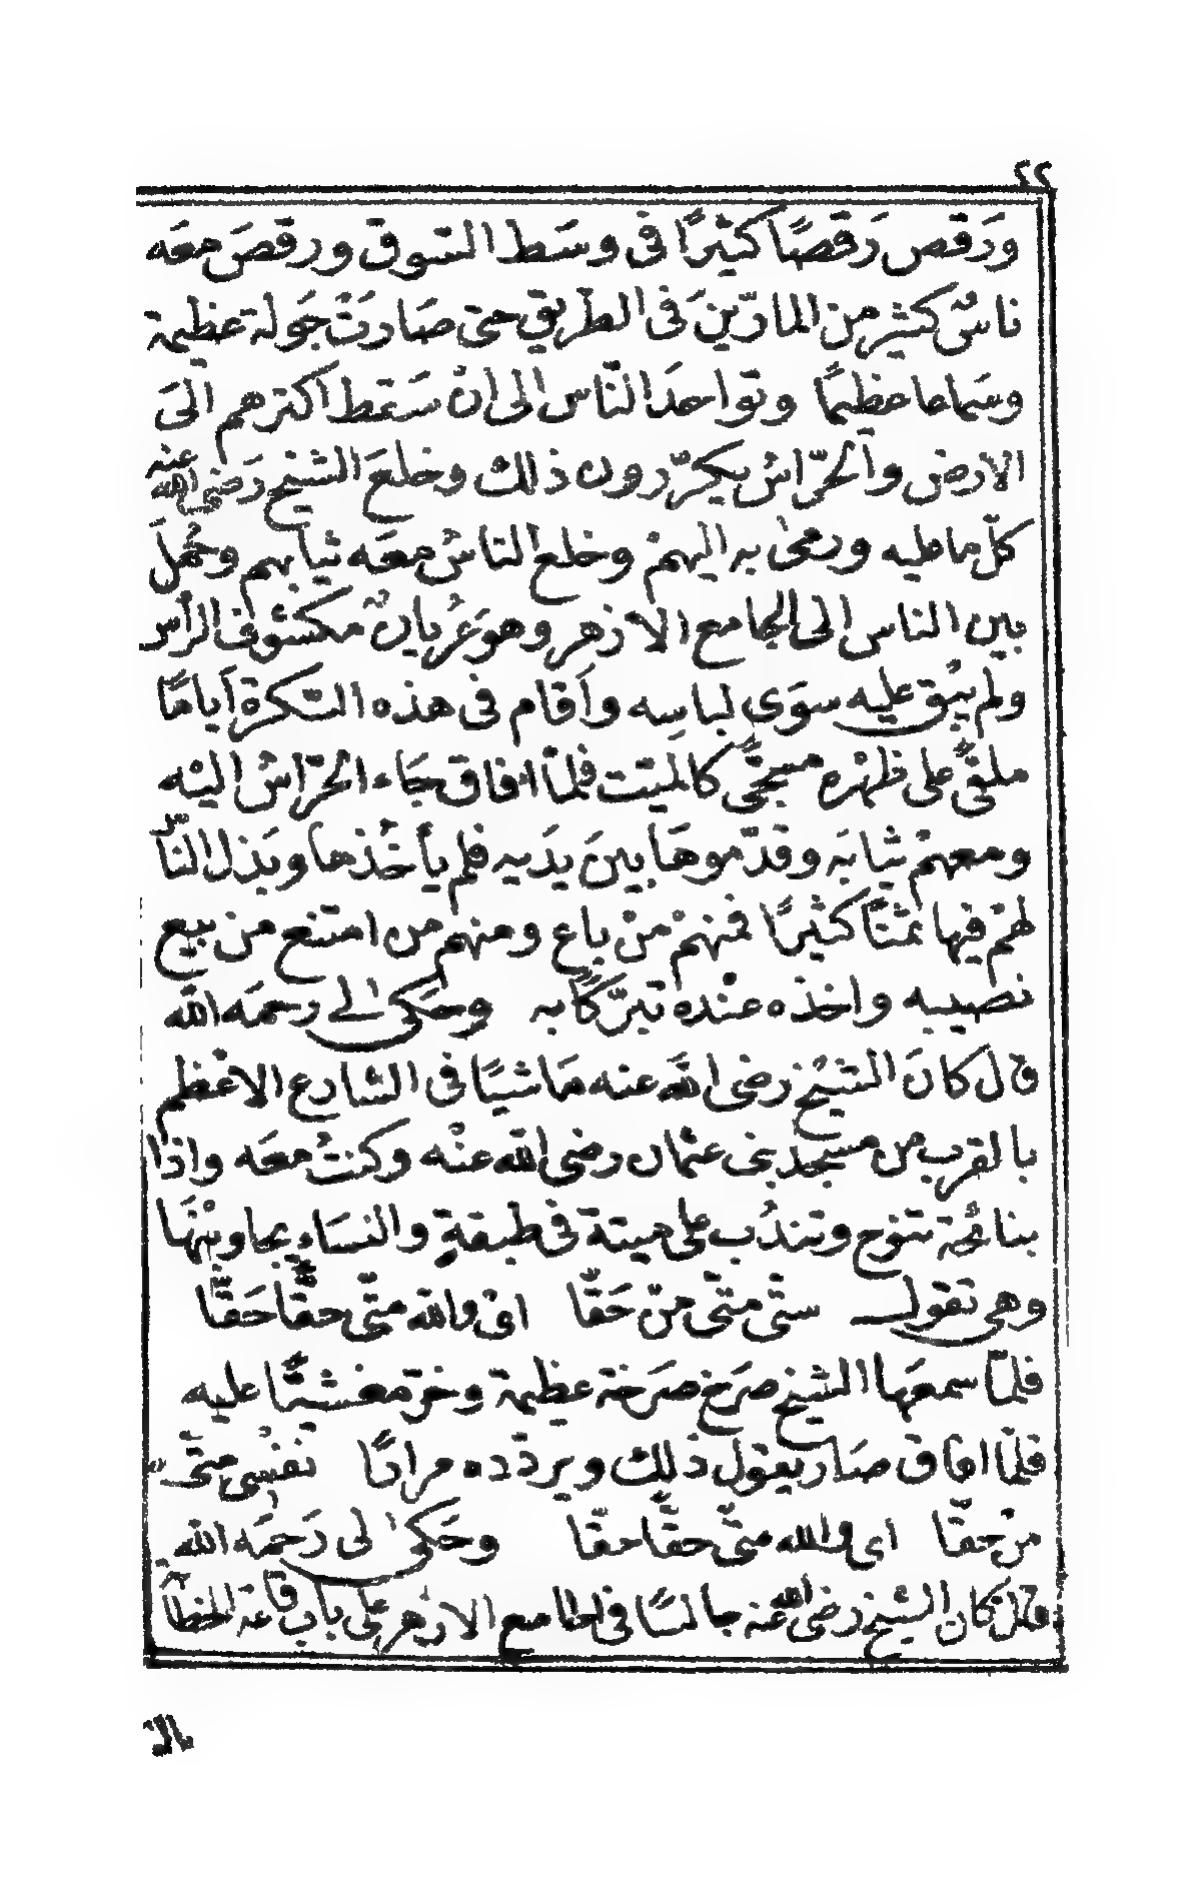 ٢٢
ورَقَص رَقصًا كثيرًا في وسَط السوق ورقصَ معَه
ناسٌ كثير من المارّينَ في الطريق حتى صَارَتْ جَولة عظيمة
وسَماعا عظيمًا وتواحدَ النّاس الى انْ سَقط اكثرهم الىَ
الارض والحرّاسُ يكرّرون ذلك وخلعَ الشيخ رَضى الله عنه
كلّ ما عليه ورمىٰ به اليهمْ وخلع الناسُ معَه ثيابهم وحُمِلَ
بين الناس الى الجامع الازهر وهوَ عُريانٌ مكشوف الرأس
ولم يبْق عليه سوَى لباسِه وأقام في هذه السّكرة أيامًا
ملقًى على ظهْره مسجّىً كالميّت فلمّا افاق جَاء الحرّاسُ اليْه
ومعهمْ ثيابَه وقدّموهَا بينَ يدَيه فلم يأخُذها وبَذل النّاسُ
لهمْ فيها ثمنًا كثيرًا فمنهمْ منْ باع ومنهم من امتنع من بيع
نصيبه واخذه عنْده تبرّكًا به وحَكى لى رحمَه الله
قال كانَ الشيْخ رضى اللّه عنه مَاشيًا في الشارع الاعْظم
بالقرب من مسجد بنى عثمان رضى اللّه عنْه وكنتُ معَه واذا
بنائحُة تنوح وتندُب على ميتة في طبقةٍ والنسَاء يجاوبْنَهَا
وهى تقول ستّى متّى منّ حَقّا اىْ واللّه متّى حقًّا حَقًّا
فلمّا سمعَها الشيخ صرَخ صَرخة عظيمة وخرّ مغشيًّا عليه
فلمّا افاق صَار يقول ذلك ويردّده مرارًا نفْسِى متّى
منْ حقّا اى والله متّى حقًّا حقّا وحَكىٰ لى رَحمَه الله
قال كان الشيخ رضى اللّه عنه جالسًا في الجامع الازهر على باب قاعة الخطابة